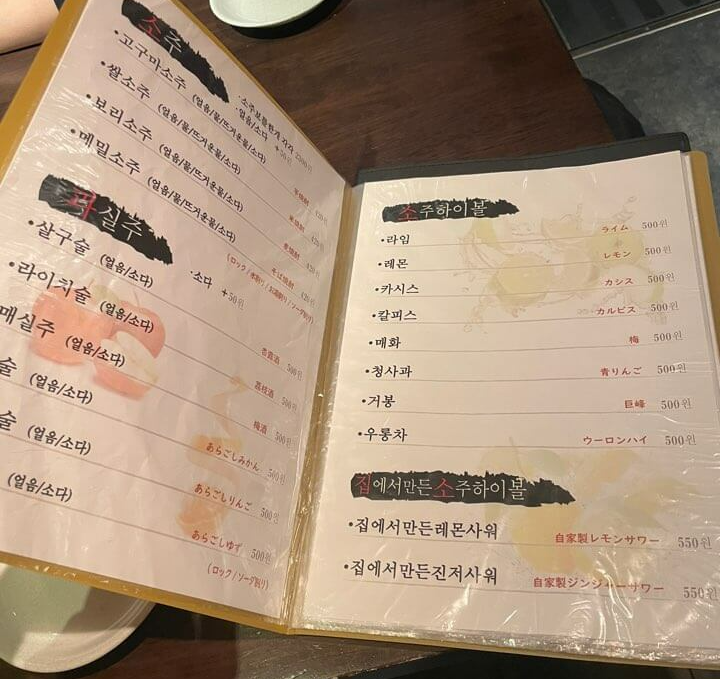 소주
·소주보틀한개 각각
·고구마소주 (얼음/물/뜨거운물/소다)
·얼음/소다 +50원
·쌀소주 (얼음/물/뜨거운물/소다)
·보리소주 (얼음/물/뜨거운물/소다)
·메밀소주 (얼음/물/뜨거운물/소다)
芋焼酎 420원
米焼酎 420원
麦焼酎 420원
そば焼酎 420원
(ロック/水割り/お湯割り/ソーダ割り)
과실주
·소다 +50원
·살구술 (얼음/소다) 杏露酒 500원
·라이치술 (얼음/소다) 茘枝酒 500원
매실주 (얼음/소다) 梅酒 500원
술 (얼음/소다) あらごしみかん 500원
술 (얼음/소다) あらごしりんご 500원
(얼음/소다) あらごしゆず 500원
(ロック/ソーダ割り)
소주하이볼
·라임 ライム 500원
·레몬 レモン 500원
·카시스 カシス 500원
·칼피스 カルピス 500원
·매화 梅 500원
·청사과 青りんご 500원
·거봉 巨峰 500원
·우롱차 ウーロンハイ 500원
집에서만든소주하이볼
·집에서만든레몬사워 自家製レモンサワー 550원
·집에서만든진저사워 自家製ジンジャーサワー 550원